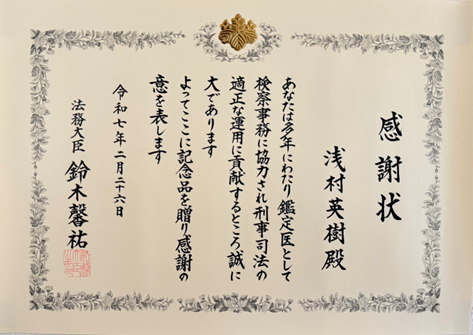 感謝状
浅村英樹殿
あなたは多年にわたり鑑定医として
検察事務に協力され刑事司法の
適正な運用に貢献するところ誠に
大であります
よってここに記念品を贈り感謝の
意を表します
令和七年二月二十六日
法務大臣 鈴木馨祐